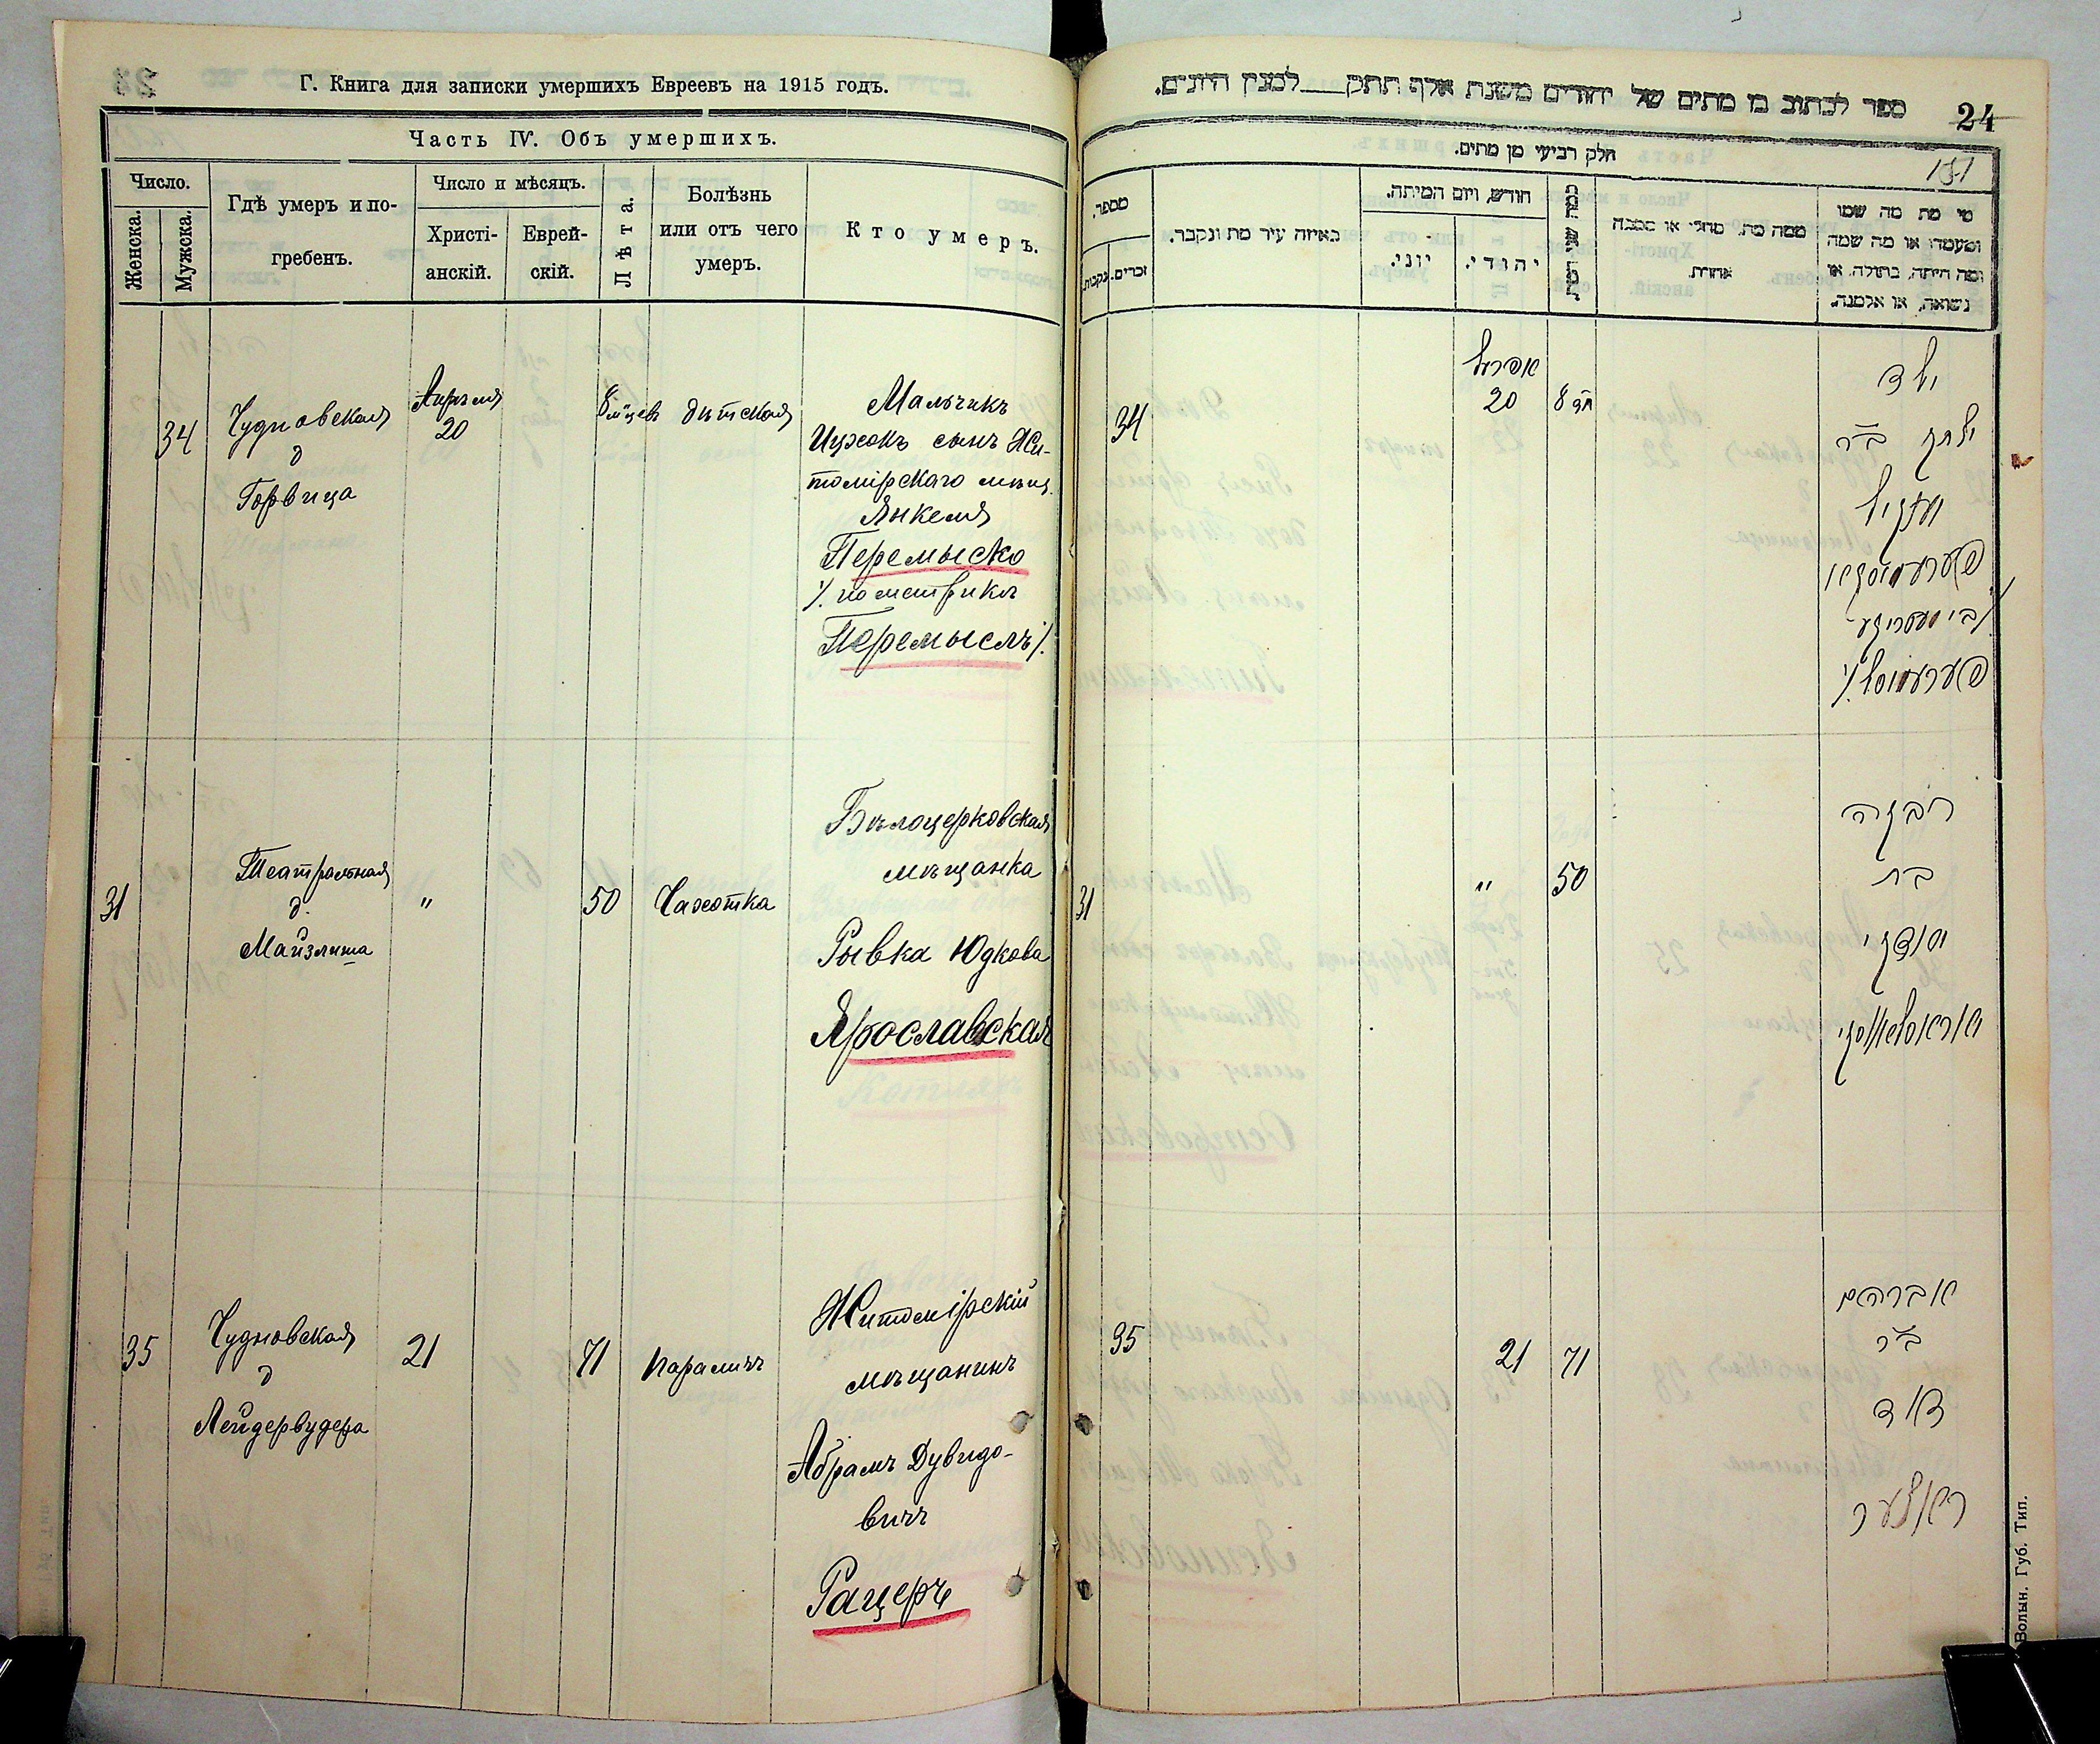 Г. Книга для записки умершихъ Евреевъ на 1915 годъ.
Часть IV. Объ умершихъ.
Число.
Женска.
Мужска.
Гдѣ умеръ и по-
гребенъ.
Число и мѣсяцъ.
Христі-
анскій.
Еврей-
скій.
Лѣта.
Болѣзнь
или отъ чего
умеръ.
Кто умеръ.
34
Чудновская
д
Горвица
Апрѣля
20
8 мѣцев
дѣтская
Мальчикъ
Ицхокъ сынъ Жи-
томірскаго мѣщ.
Янкеля
Перемыско
/. по метрикѣ
Перемыслъ /.
31
Театральная
д.
Майзлиша
"
50
Чахотка
Бѣлоцерковская
мѣщанка
Рывка Юдкова
Ярославская
35
Чудновская
д
Лейдервудера
21
71
параличъ
Житомірскій
мѣщанинъ
Абрамъ Дувидо-
вичъ
Рацеръ
ספר לכתוב בו מתים של יהודים משנת אלף תתק למנין היונים.
24
חלק רביעי מן מתים.
151
מספר.
זכרים.
נקבות.
באיזה עיר מת ונקבר.
חודש, ויום המיתה.
יוני.
יהודי.
ממה מת. מחלי או מסבה
אחרת.
מי מת מה שמו
ומעמדו או מה שמה
ומה היתה, בתולה, או
נשואה, או אלמנה.
34
אפריל
20
8 חד
ילד
יצחק ב"ר
יאנקיל
פערעמיסקא
/.בי מעטריקע
פערעמיסל ./
31
"
50
ריבקה
בת
יודקי
יאראסלאווסקי
35
21
71
אברהם
ב"ר
דוד
ראצער
Волын. Губ. Тип.